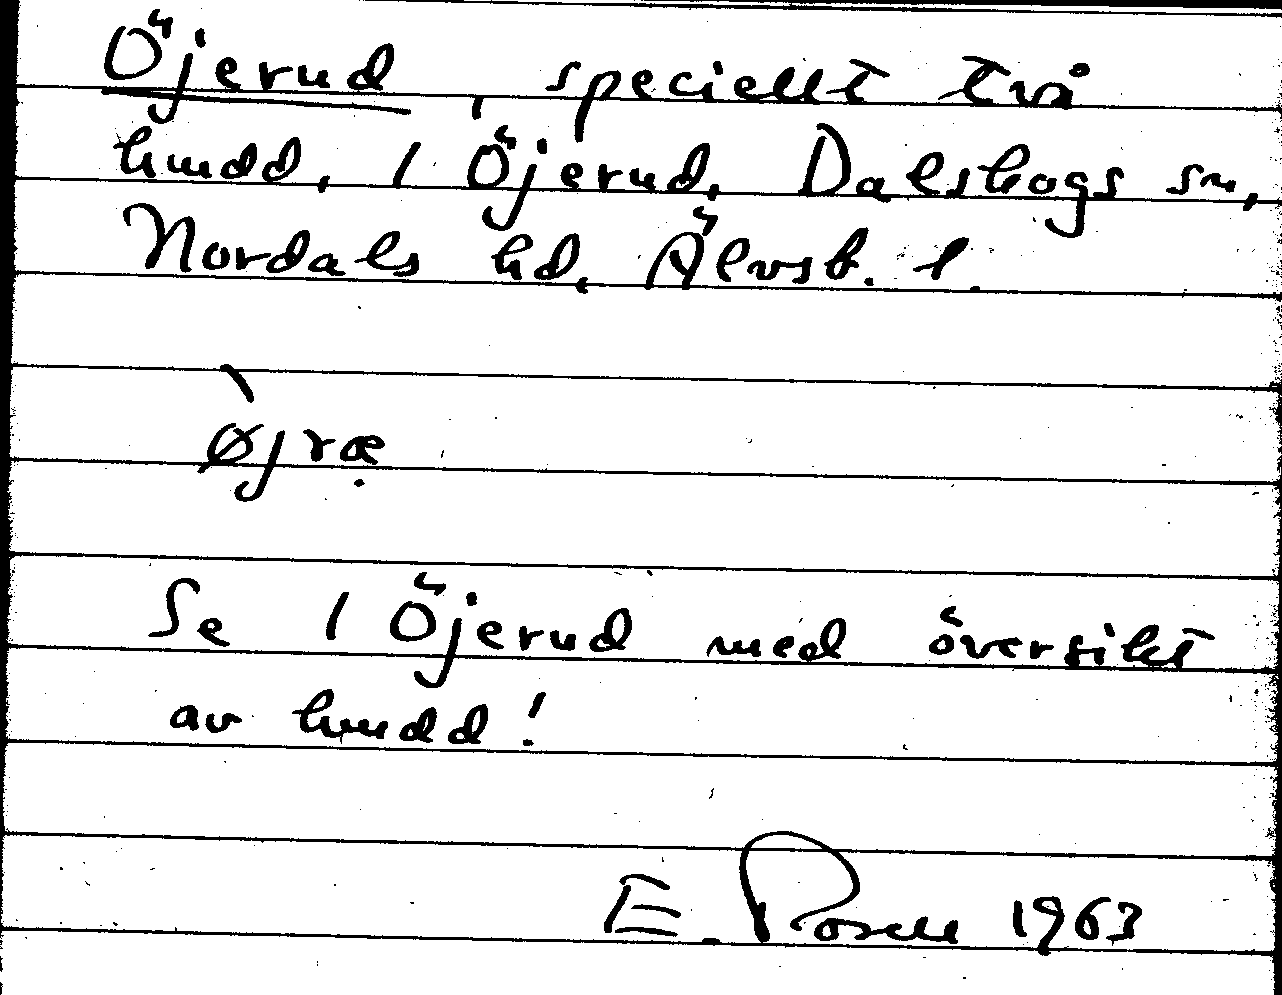 Öjerud, speciellt två
hmdd, 1 Öjerud, Dalskogs sn,
Nordals hd, Älvsb. l.
`øjræ̣
Se 1 Öjerud med översikt
av hmdd!
E. Rosell 1963